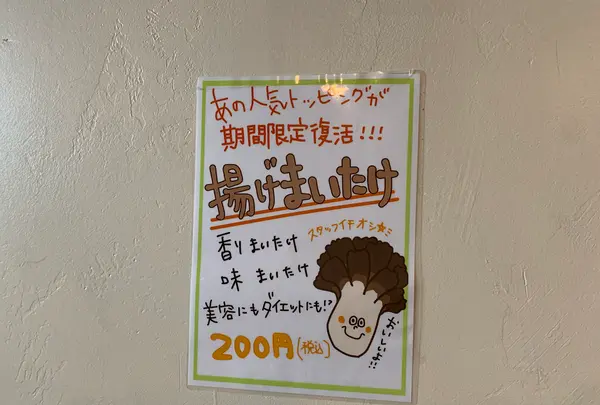 あの人気トッピングが
期間限定復活!!!
揚げまいたけ
スタッフイチオシ☆ミ
香りまいたけ
味 まいたけ
美容にもダイエットにも!?
おいしいよ!!
200円(税込)